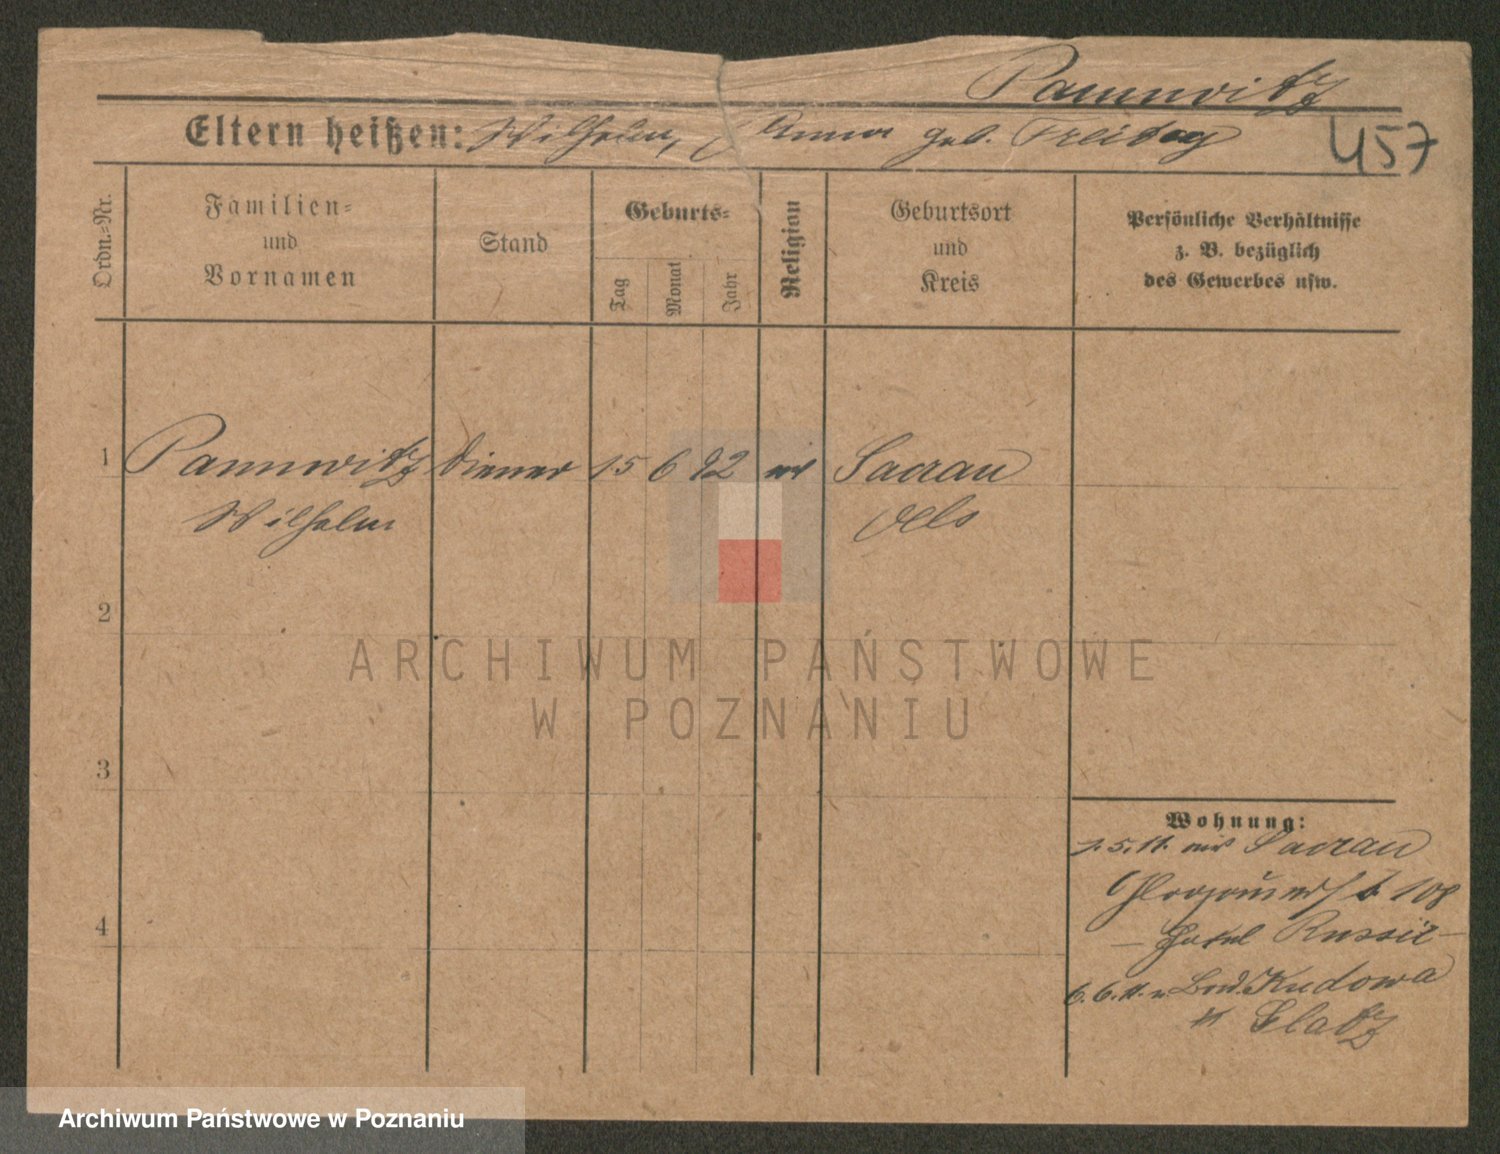 Pannwitz
Eltern heißen: Wilhelm, Anna geb. Freitag
457
Ordn.-Nr.
Familien-
und
Vornamen
Stand
Geburts-
Tag
Monat
Jahr
Religion
Geburtsort
und
Kreis
Persönliche Verhältnisse
z. B. bezüglich
des Gewerbes usw.
1 Pannwitz Diener 15 6 92 Sacrau
Wilhelm Oels
2
3
4
Wohnung:
1.5.11. Sacrau
108
Hotel Russie
6.6.11. n. Bad Kudowa
Glatz
ARCHIWUM PAŃSTWOWE
W POZNANIU
Archiwum Państwowe w Poznaniu